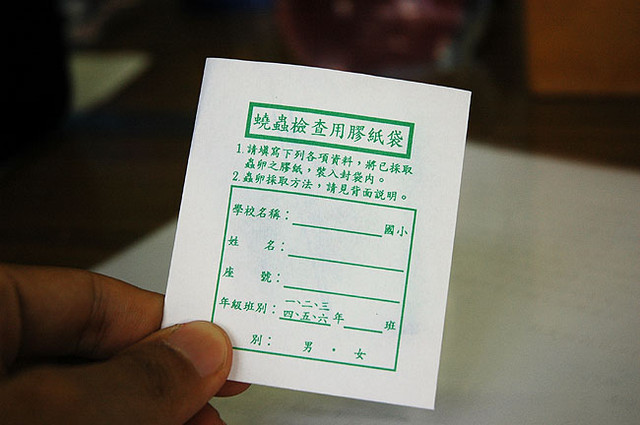 蟯蟲檢查用膠紙袋
1.請填寫下列各項資料，將已採取
蟲卵之膠紙，裝入封袋內。
2.蟲卵採取方法，請見背面說明。
學校名稱：國小
姓 名：
座 號：
年級班別：一、二、三
四、五、六 年 班
別： 男 · 女